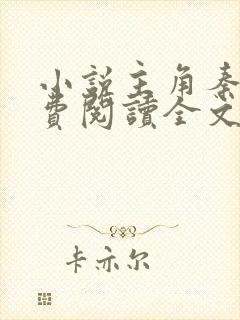 小說主角秦
費閱讀全文
卡亦尔